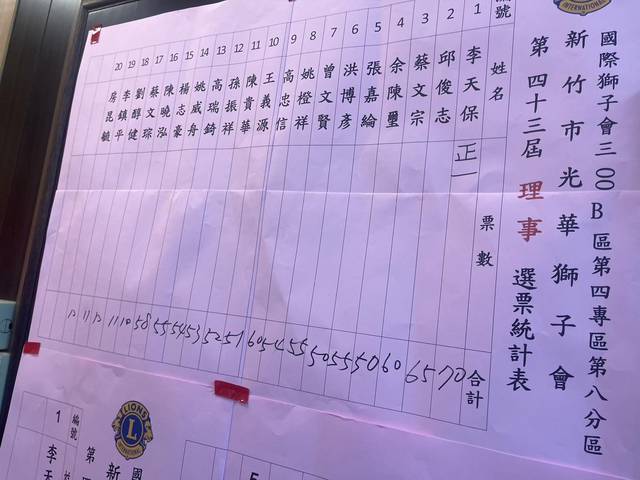 INTERNATIONAL
國際獅子會三00B區第四專區第八分區
新竹市光華獅子會
第四十三屆理事選票統計表
編號 姓名 票數 合計
1 李天保 正一 70
2 邱俊志 65
3 蔡文宗 60
4 余陳璽 50
5 張嘉綸 55
6 洪博彥 50
7 曾文賢 55
8 姚橙祥 54
9 高忠信 60
10 王義源 51
11 陳貴華 52
12 孫振祥 53
13 高瑞錡 54
14 姚威舟 55
15 楊志豪 58
16 陳曉泓 10
17 蔡文琮 11
18 劉醇健 12
19 李鎮平 11
20 房昆毓 12
LIONS
L
INTERNATIONAL
國
新
第
編號
1 李天
5